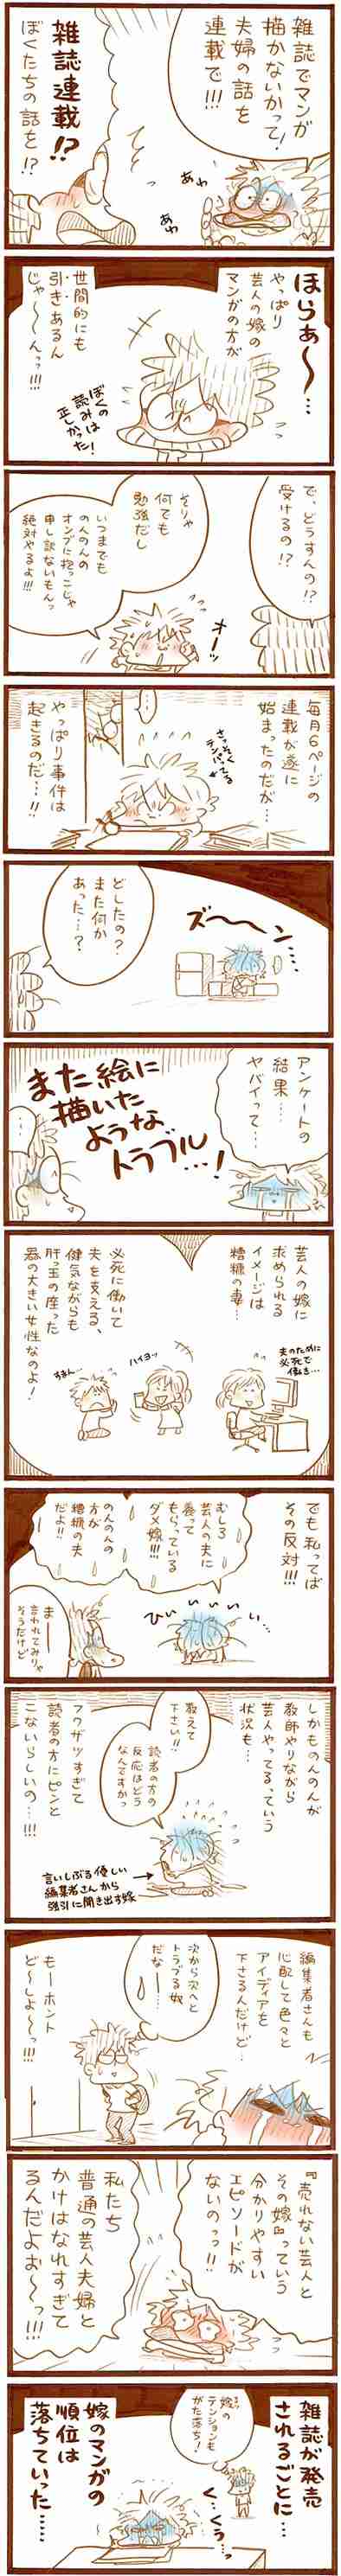 雑誌でマンガ
描かないかって!
夫婦の話を
連載で!!!
あわ
あわ
てと
雑誌連載!?
ぼくたちの話を!?
ほらぁ〜…
やっぱり
芸人の嫁の
マンガの方が
世間的にも
引きあるん
じゃ〜〜んっ!!!
ぼくの
読みは
正しかった!
で、どうすんの!?
受けるの!?
そりゃ
何でも
勉強だし
いつまでも
のんのんの
オンブに抱っこじゃ
申し訳ないもんっ
絶対やるよ!!!
オーッ
毎月6ページの
連載が遂に
始まったのだが…
さっそく
テンパってる
…
やっぱり事件は
起きるのだ…!!
ズ〜〜ン…
どしたの?
また何か
あった…?
アンケートの
結果……
ヤバイって…
また絵に
描いた
ような
トラブル…!
…
芸人の嫁に
求められる
イメージは
糟糠の妻…
夫のために
必死で
働き…
ハイヨッ
すまん…
必死に働いて
夫を支える、
健気ながらも
肝っ玉の座った
器の大きい女性なのよ!
でも私ってば
その反対!!!
むしろ
芸人の夫に
養って
もらっている
ダメ嫁!!!
のんのんの
方が
糟糠の夫
だよ!!
ひぃぃぃぃぃ…
まー
言われてみりゃ
そうだけど
しかものんのんが
教師やりながら
芸人やってるっていう
状況も…
教えて
下さい!!
読者の方の
反応はどう
なんですかっ
フクザツすぎて
読者の方にピンと
こないらしいの…!!!
言いしぶる優しい
編集者さんから
強引に聞き出す嫁
編集者さんも
心配して色々と
アイディアを
下さるんだけど…
次から次へと
トラブる奴
だな…
もーホント
ど〜しよ〜っ!!!
『売れない芸人と
その嫁』っていう
分かりやすい
エピソードが
ないのっっ!!
私たち
普通の芸人夫婦と
かけはなれすぎて
るんだよぉ〜っ!!!
雑誌が発売
されるごとに…
嫁の
テンションも
がた落ち!
く…くうっ…
嫁のマンガの
順位は
落ちていった……